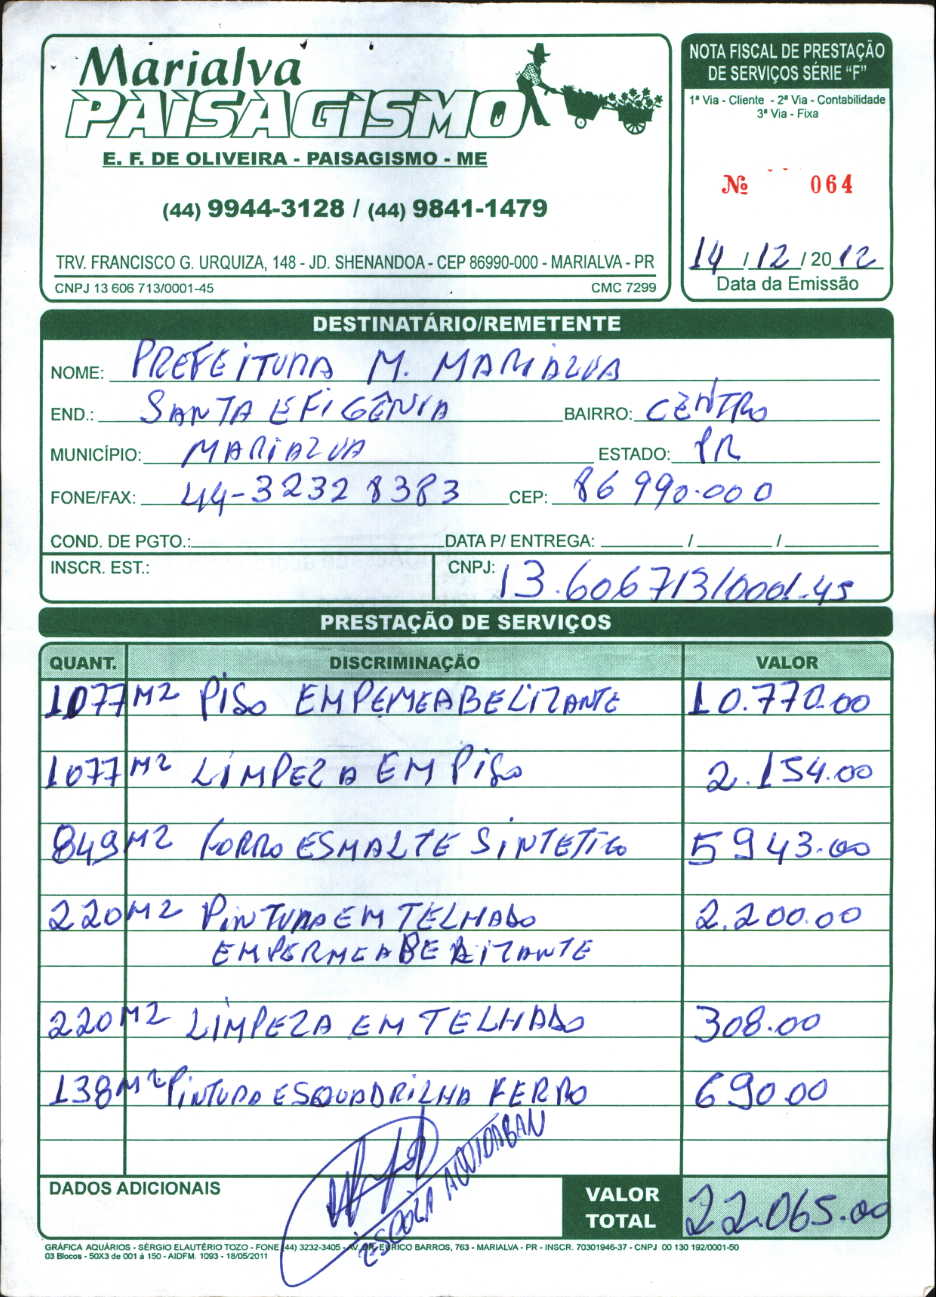 Marialva
PAISAGISMO
E. F. DE OLIVEIRA - PAISAGISMO - ME
(44) 9944-3128 / (44) 9841-1479
TRV. FRANCISCO G. URQUIZA, 148 - JD. SHENANDOA - CEP 86990-000 - MARIALVA - PR
CNPJ 13 606 713/0001-45 CMC 7299
NOTA FISCAL DE PRESTAÇÃO
DE SERVIÇOS SÉRIE “F”
1ª Via - Cliente - 2ª Via - Contabilidade
3ª Via - Fixa
Nº 064
14 / 12 / 2012
Data da Emissão
DESTINATÁRIO/REMETENTE
NOME: PREFEITURA M. MARIALVA
END.: SANTA EFIGÊNIA BAIRRO: CENTRO
MUNICÍPIO: MARIALVA ESTADO: PR
FONE/FAX: 44-3232 8383 CEP: 86 990.000
COND. DE PGTO.: DATA P/ ENTREGA: / /
INSCR. EST.: CNPJ: 13.606713/0001.45
PRESTAÇÃO DE SERVIÇOS
QUANT. DISCRIMINAÇÃO VALOR
1077 M2 PISO EMPEMEABELIZANTE 10.770.00
1077 M2 LIMPEZA EM PISO 2.154.00
849 M2 FORRO ESMALTE SINTETICO 5943.00
220 M2 PINTURA EM TELHADO 2.200.00
EMPERMEABELIZANTE
220 M2 LIMPEZA EM TELHADO 308.00
138 M2 PINTURA ESQUADRILHA FERRO 690.00
ESCOLA AQUIDABAN
DADOS ADICIONAIS
VALOR
TOTAL 22.065.00
GRÁFICA AQUÁRIOS - SÉRGIO ELAUTÉRIO TOZO - FONE (44) 3232-3405 - AV. CIR. EURICO BARROS, 763 - MARIALVA - PR - INSCR. 70301946-37 - CNPJ 00 130 192/0001-50
03 Blocos - 50X3 de 001 á 150 - AIDFM. 1093 - 18/05/2011